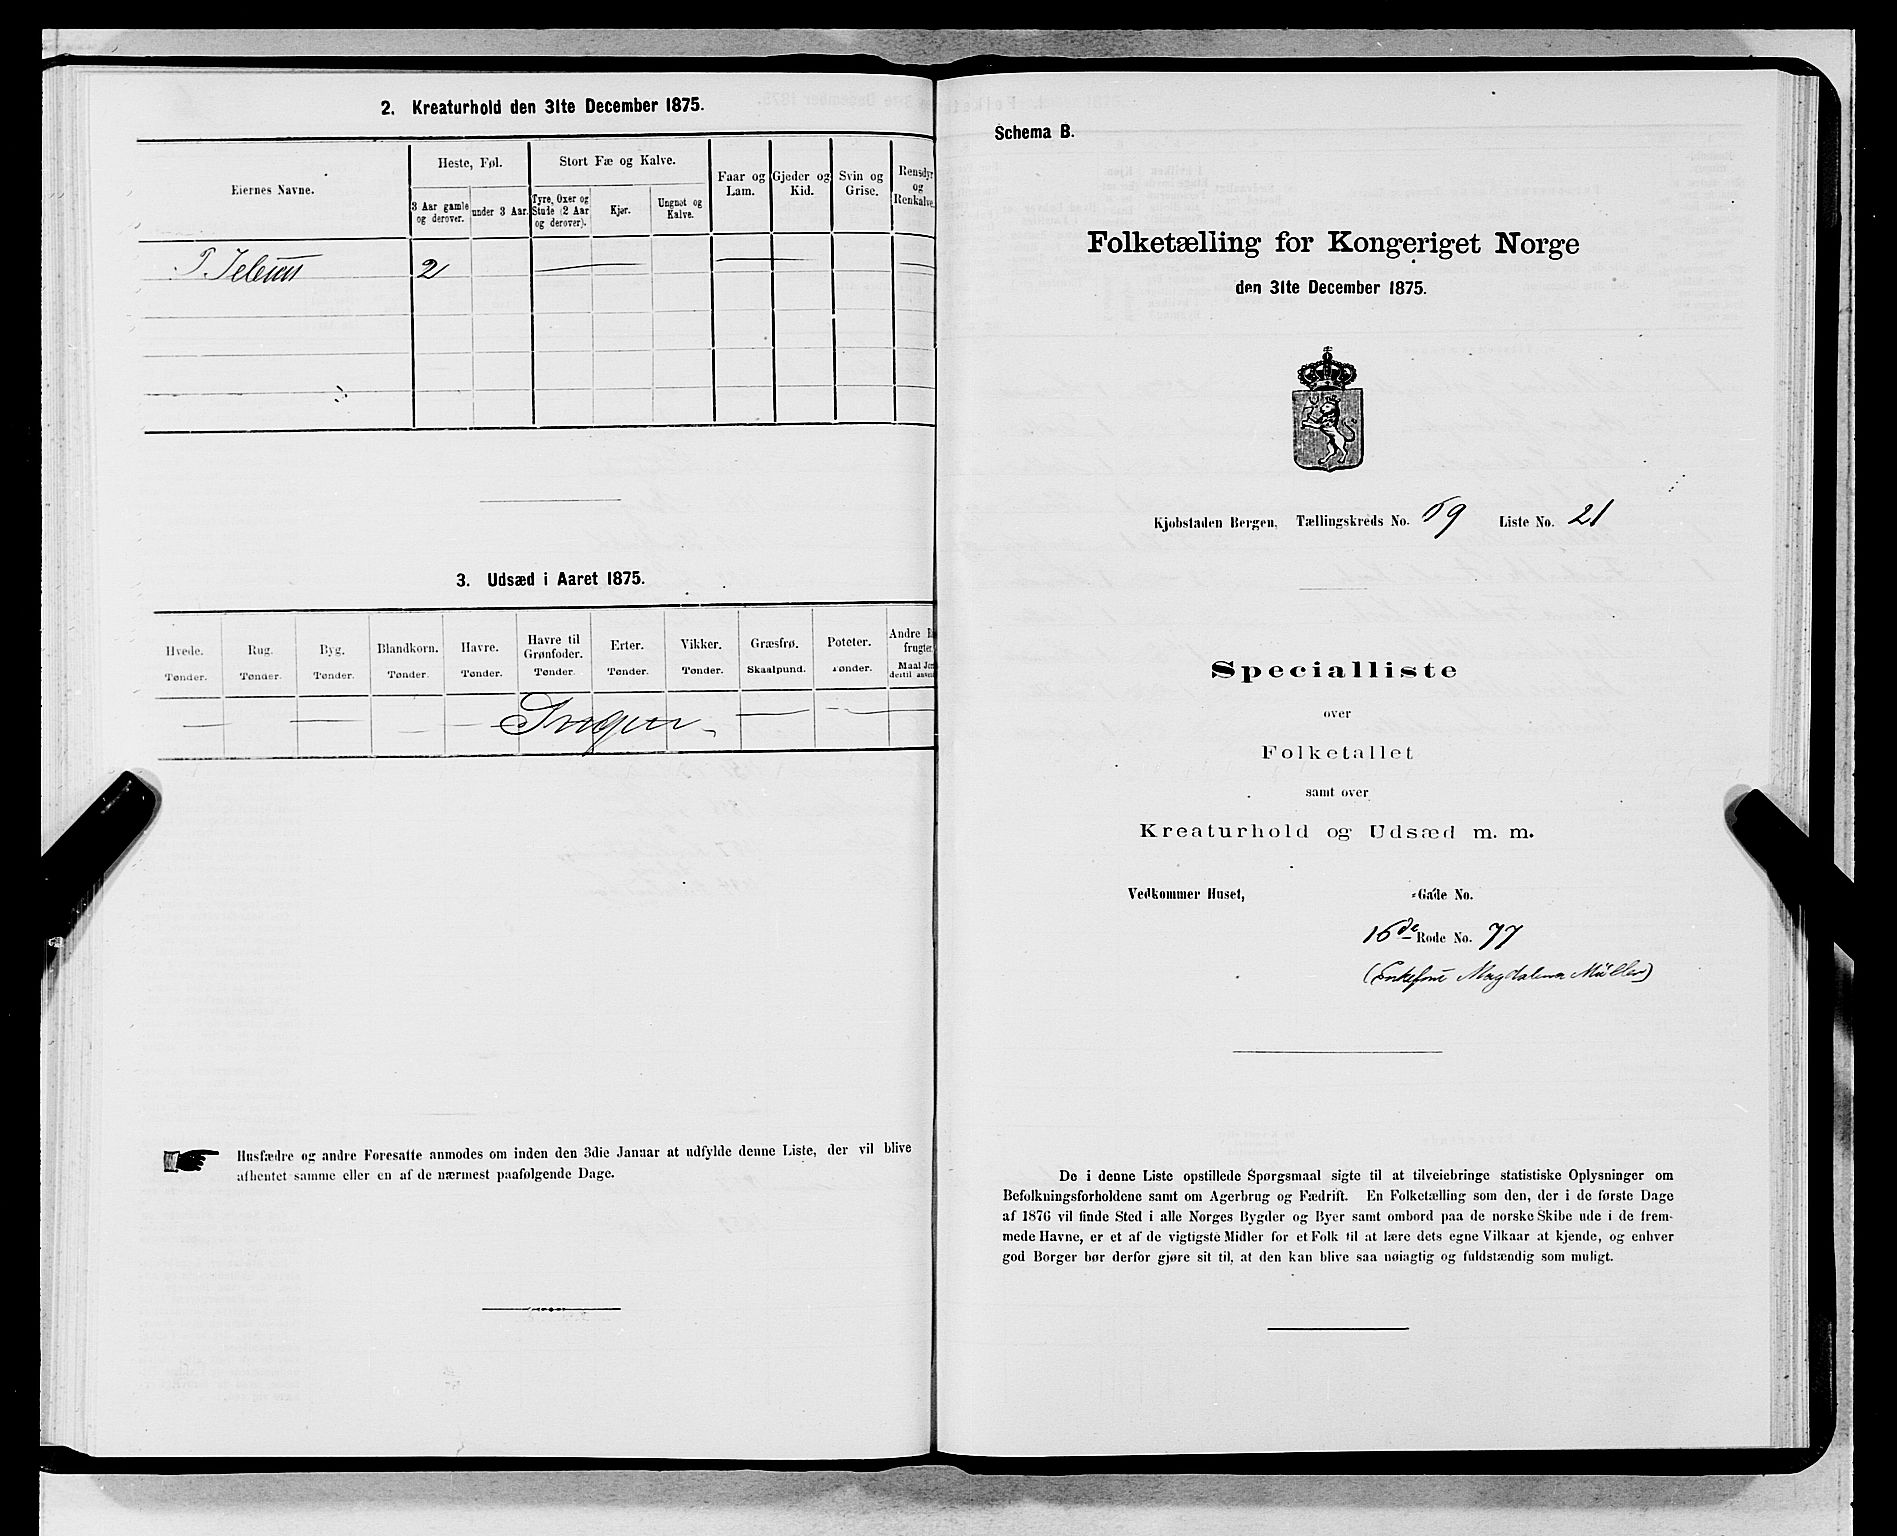 2. Kreaturhold den 31te December 1875.
Eiernes Navne.
Heste, Føl.
Stort Fæ og Kalve.
Faar og Lam.
Gjeder og Kid.
Svin og Grise.
Rensdyr og Renkalve.
3 Aar gamle og derover.
under 3 Aar.
Tyre, Oxer og Stude (2 Aar og derover).
Kjør.
Ungnøt og Kalve.
2
3. Udsæd i Aaret 1875.
Hvede. Rug. Byg. Blandkorn. Havre. Havre til Grønfoder. Erter. Vikker. Græsfrø. Poteter. Andre
frugter
Tønder. Tønder. Tønder. Tønder. Tønder. Tønder. Tønder. Tønder. Skaalpund. Tønder. Maal
Ingen
Husfædre og andre Foresatte anmodes om inden den 3die Januar at udfylde denne Liste, der vil blive
afhentet samme eller en af de nærmest paafølgende Dage.
Schema B.
Folketælling for Kongeriget Norge
den 31te December 1875.
Kjøbstaden Bergen, Tællingskreds No. 59 Liste No. 21
Specialliste
over
Folketallet
samt over
Kreaturhold og Udsæd m. m.
Vedkommer Huset, -Gade No.
16de Rode No. 77
(Enkefru Magdalena Müller)
De i denne Liste opstillede Spørgsmaal sigte til at tilveiebringe statistiske Oplysninger om
Befolkningsforholdene samt om Agerbrug og Fædrift. En Folketælling som den, der i de første Dage
af 1876 vil finde Sted i alle Norges Bygder og Byer samt ombord paa de norske Skibe ude i de frem-
mede Havne, er et af de vigtigste Midler for et Folk til at lære dets egne Vilkaar at kjende, og enhver
god Borger bør derfor gjøre sit til, at den kan blive saa nøiagtig og fuldstændig som muligt.